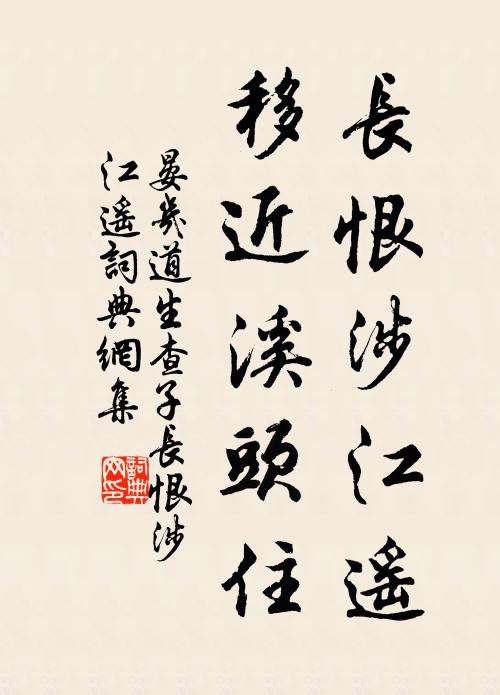 長恨涉江遥
移近溪頭住
晏幾道生查子長恨涉
江遥詞典網集
詞典
网印